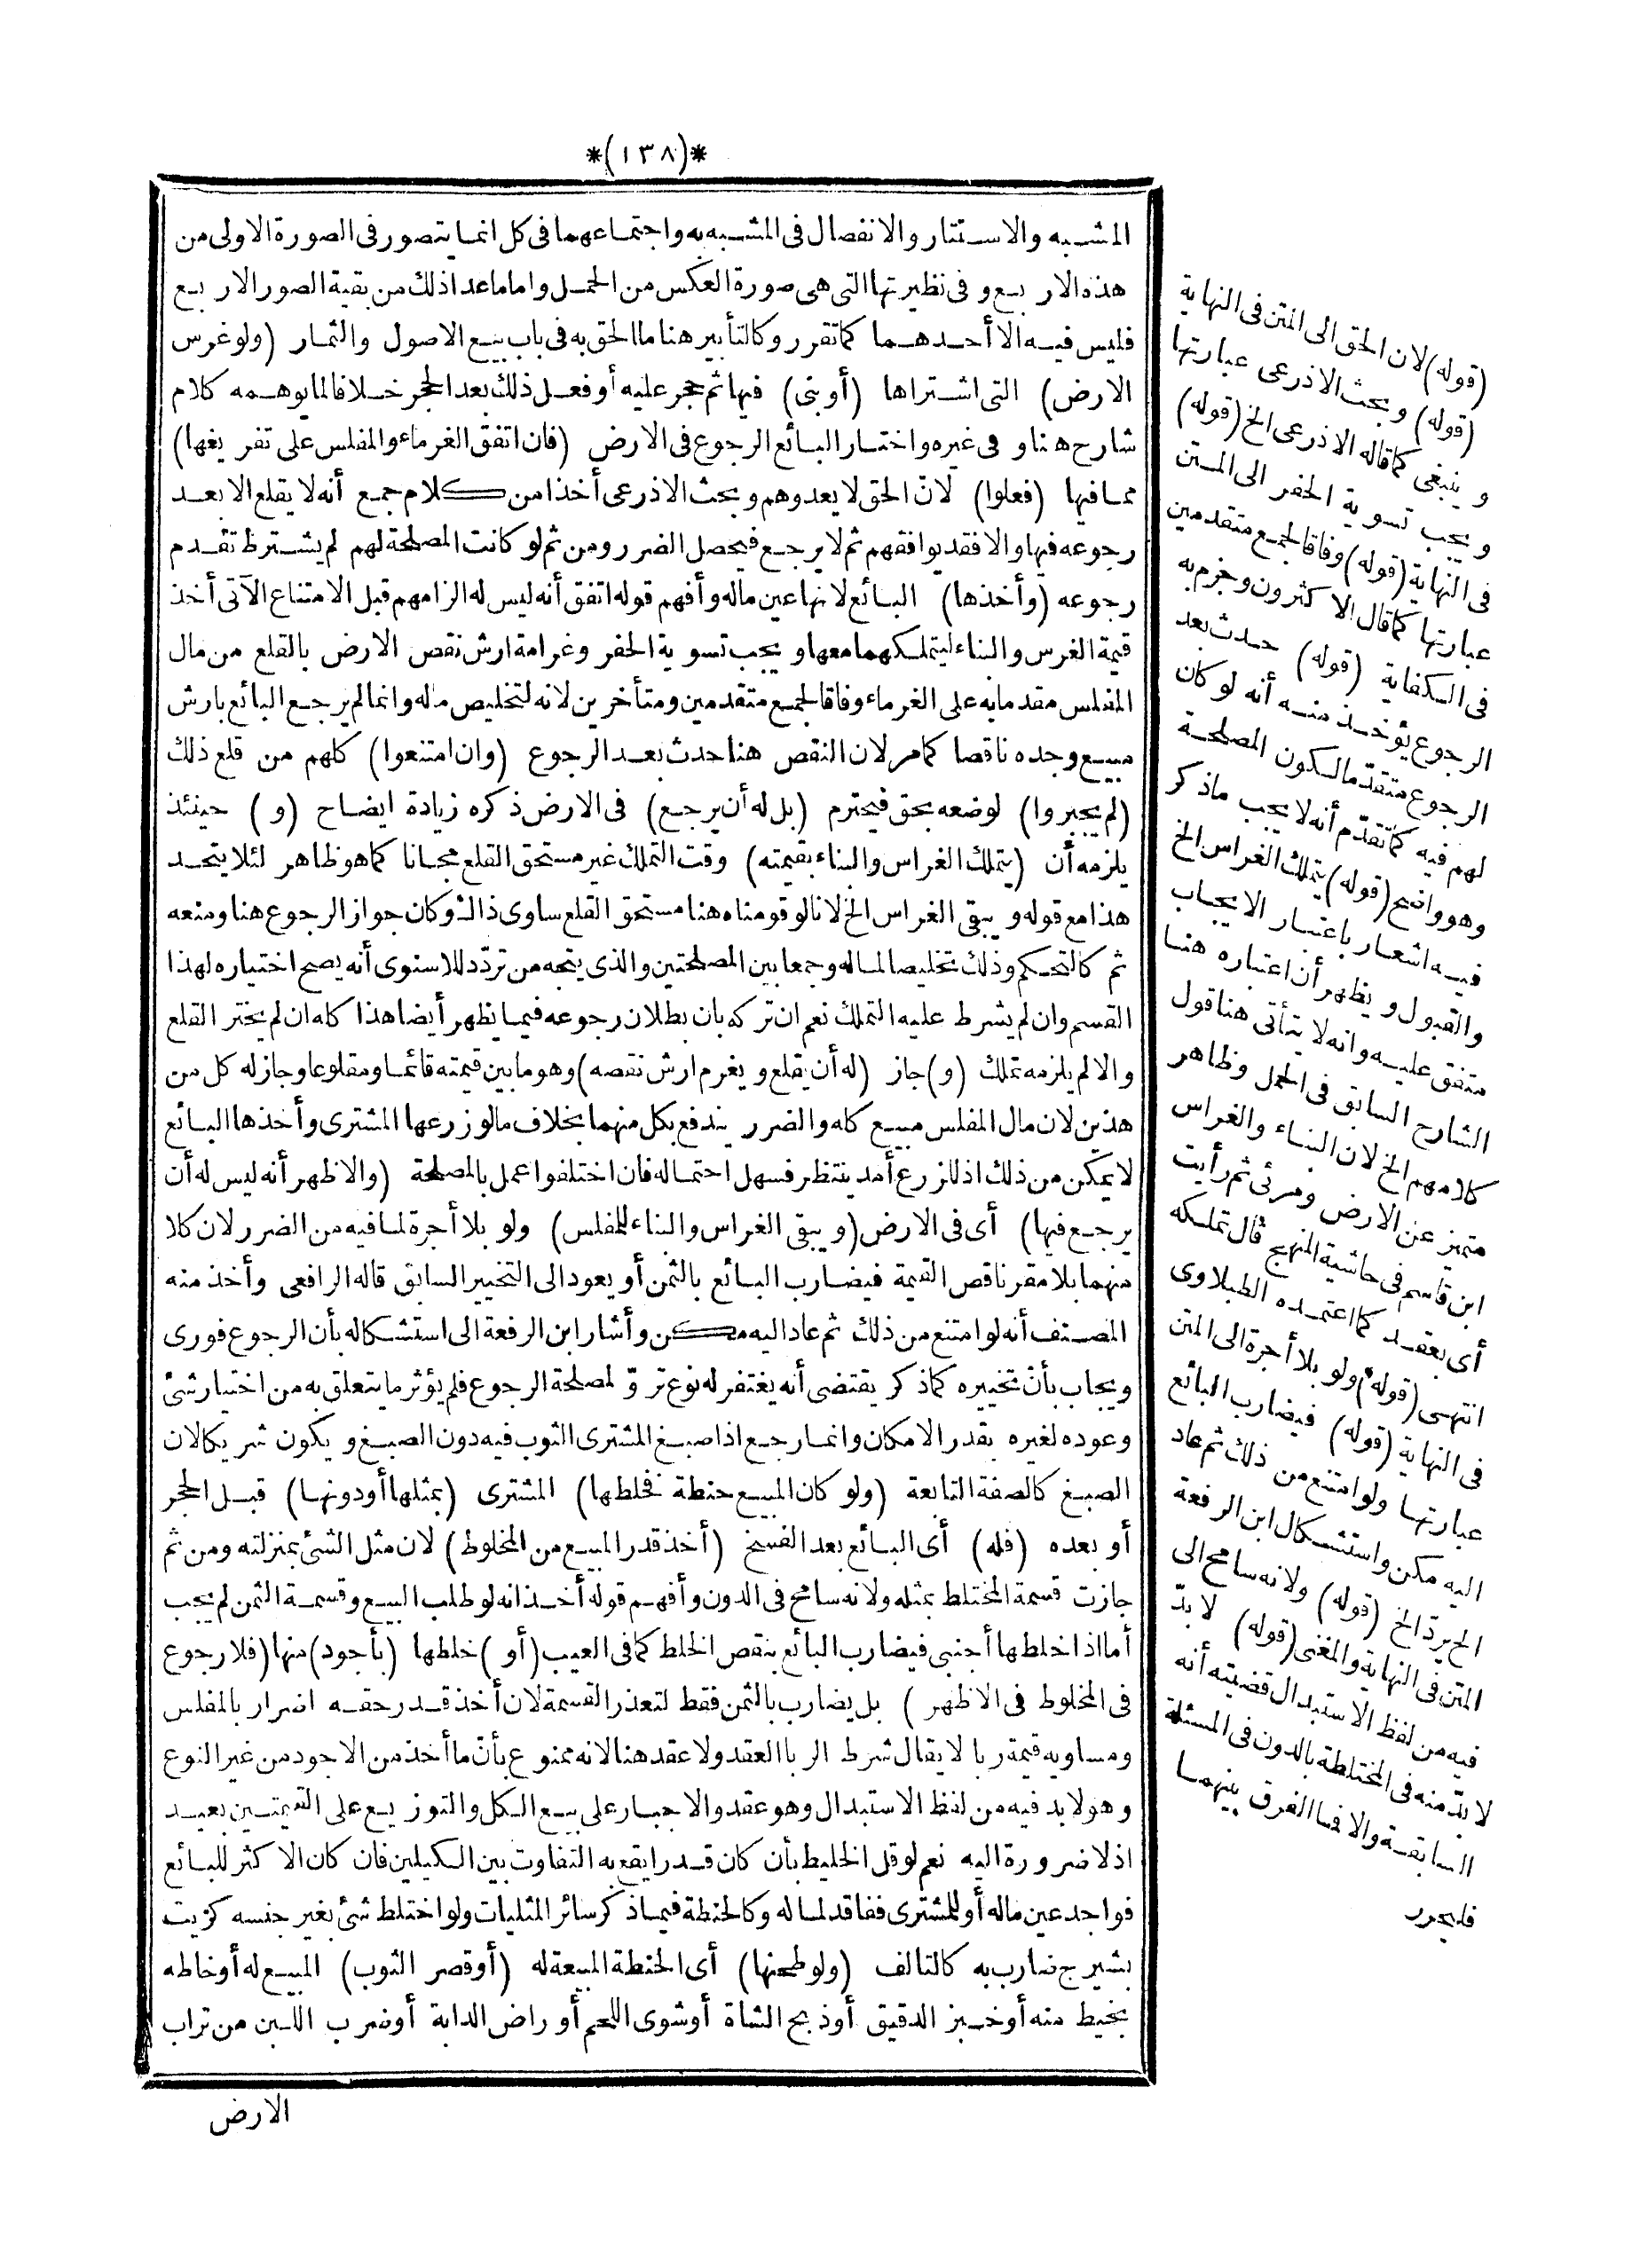 *(١٣٨)*
المشبه والاستتار والانفصال فى المشبه به واجتماعهما فى كل انما يتصور فى الصورة الاولى من
هذه الاربع وفى نظيرتها التى هى صورة العكس من الحمل واماما عدا ذلك من بقية الصور الاربع
فليس فيه الا أحدهما كما تقرر وكالتأبير هنا ما الحق به فى باب بيع الاصول والثمار (ولو غرس
الارض) التى اشتراها (أو بنى) فيها ثم حجر عليه أو فعل ذلك بعد الحجر خلافا لما يوهمه كلام
شارح هنا وفى غيره واختار البائع الرجوع فى الارض (فان اتفق الغرماء والمفلس على تفريغها)
مما فيها (فعلوا) لان الحق لا يعدوهم وبحث الاذرعى أخذا من كلام جمع أنه لا يقلع الا بعد
رجوعه فيها والا فقد يوافقهم ثم لا يرجع فيحصل الضرر ومن ثم لو كانت المصلحة لهم لم يشترط تقدم
رجوعه (وأخذها) البائع لانها عين ماله وأفهم قوله اتفق أنه ليس له الزامهم قبل الامتناع الآتى أخذ
قيمة الغرس والبناء ليتملكهما معها ويجب تسوية الحفر وغرامة ارش نقص الارض بالقلع من مال
المفلس مقدما به على الغرماء وفاقا لجمع متقدمين ومتأخرين لانه لتخليص ماله وانما لم يرجع البائع بارش
مبيع وجده ناقصا كما مر لان النقص هنا حدث بعد الرجوع (وان امتنعوا) كلهم من قلع ذلك
(لم يجبروا) لوضعه بحق فيحترم (بل له أن يرجع) فى الارض ذكره زيادة ايضاح (و) حينئذ
يلزمه أن (يتملك الغراس والبناء بقيمته) وقت التملك غير مستحق القلع مجانا كما هو ظاهر لئلا يتحد
هذا مع قوله ويبقى الغراس الخ لانا لو قومناه هنا مستحق القلع ساوى ذالـ وكان جواز الرجوع هنا ومنعه
ثم كالتحكم وذلك تخليصا لماله وجمعا بين المصلحتين والذى يتجه من تردّد للاسنوى أنه يصح اختياره لهذا
القسم وان لم يشرط عليه التملك نعم ان تركه بان بطلان رجوعه فيما يظهر أيضا هذا كله ان لم يختر القلع
والا لم يلزمه تملك (و) جاز (له أن يقلع ويغرم ارش نقصه) وهو ما بين قيمته قائما ومقلوعا وجاز له كل من
هذين لان مال المفلس مبيع كله والضرر يندفع بكل منهما بخلاف مالو زرعها المشترى وأخذها البائع
لا يمكن من ذلك اذ للزرع أمد ينتظر فسهل احتماله فان اختلفوا عمل بالمصلحة (والاظهر أنه ليس له أن
يرجع فيها) أى فى الارض (ويبقى الغراس والبناء للمفلس) ولو بلا أجرة لما فيه من الضرر لان كلا
منهما بلا مقر ناقص القيمة فيضارب البائع بالثمن أو يعود الى التخيير السابق قاله الرافعى وأخذ منه
المصنف أنه لو امتنع من ذلك ثم عاد اليه مكن وأشار ابن الرفعة الى استشكاله بأن الرجوع فورى
ويجاب بأن تخييره كما ذكر يقتضى أنه يغتفر له نوع تروّ لمصلحة الرجوع فلم يؤثر ما يتعلق به من اختيار شئ
وعوده لغيره بقدر الامكان وانما رجع اذا صبغ المشترى الثوب فيه دون الصبغ ويكون شريكا لان
الصبغ كالصفة التابعة (ولو كان المبيع حنطة فخلطها) المشترى (بمثلها أو دونها) قبل الحجر
أو بعده (فله) أى البائع بعد الفسخ (أخذ قدر المبيع من المخلوط) لان مثل الشئ بمنزلته ومن ثم
جازت قسمة المختلط بمثله ولانه سامح فى الدون وأفهم قوله أخذ انه لو طلب البيع وقسمة الثمن لم يجب
أما اذا خلطها أجنبى فيضارب البائع بنقص الخلط كما فى العيب (أو) خلطها (بأجود) منها (فلا رجوع
فى المخلوط فى الاظهر) بل يضارب بالثمن فقط لتعذر القسمة لان أخذ قدر حقه اضرار بالمفلس
ومساويه قيمة ربا لا يقال شرط الربا العقد ولا عقد هنا لانه ممنوع بأن ما أخذ من الاجود من غير النوع
وهو لا بد فيه من لفظ الاستبدال وهو عقد والاجبار على بيع الكل والتوزيع على القيمتين بعيد
اذ لا ضرورة اليه نعم لو قل الخليط بأن كان قدرا يقع به التفاوت بين الكيلين فان كان الاكثر للبائع
فواجد عين ماله أو للمشترى ففاقد لماله وكالحنطة فيما ذكر سائر المثليات ولو اختلط شئ بغير جنسه كزيت
بشيرج ضارب به كالتالف (ولو طحنها) أى الحنطة المبيعة له (أو قصر الثوب) المبيع له أو خاطه
بخيط منه أو خبز الدقيق أو ذبح الشاة أو شوى اللحم أو راض الدابة أو ضرب اللبن من تراب
الارض
(قوله) لان الحق الى المتن فى النهاية
(قوله) وبحث الاذرعى عبارتها
وينبغى كما قاله الاذرعى الخ (قوله)
ويجب تسوية الحفر الى المتن
فى النهاية (قوله) وفاقا لجمع متقدمين
عبارتها كما قال الاكثرون وجزم به
فى الكفاية (قوله) حدث بعد
الرجوع يؤخذ منه أنه لو كان
الرجوع متقدّما لكون المصلحة
لهم فيه كما تقدّم أنه لا يجب ما ذكر
وهو واضح (قوله) يتملك الغراس الخ
فيه اشعار باعتبار الايجاب
والقبول ويظهر أن اعتباره هنا
متفق عليه وانه لا يتأتى هنا قول
الشارح السابق فى الحمل وظاهر
كلامهم الخ لان البناء والغراس
متميز عن الارض ومرئى ثم رأيت
ابن قاسم فى حاشية المنهج قال تملكه
أى بعقد كما اعتمده الطبلاوى
انتهى (قوله) ولو بلا أجرة الى المتن
فى النهاية (قوله) فيضارب البائع
عبارتها ولو امتنع من ذلك ثم عاد
اليه مكن واستشكال ابن الرفعة
الخ يردّ الخ (قوله) ولانه سامح الى
المتن فى النهاية والمغنى (قوله) لا بدّ
فيه من لفظ الاستبدال قضيته أنه
لا بدّ منه فى المختلطة بالدون فى المسئلة
السابقة والا فما الفرق بينهما
فليحرر